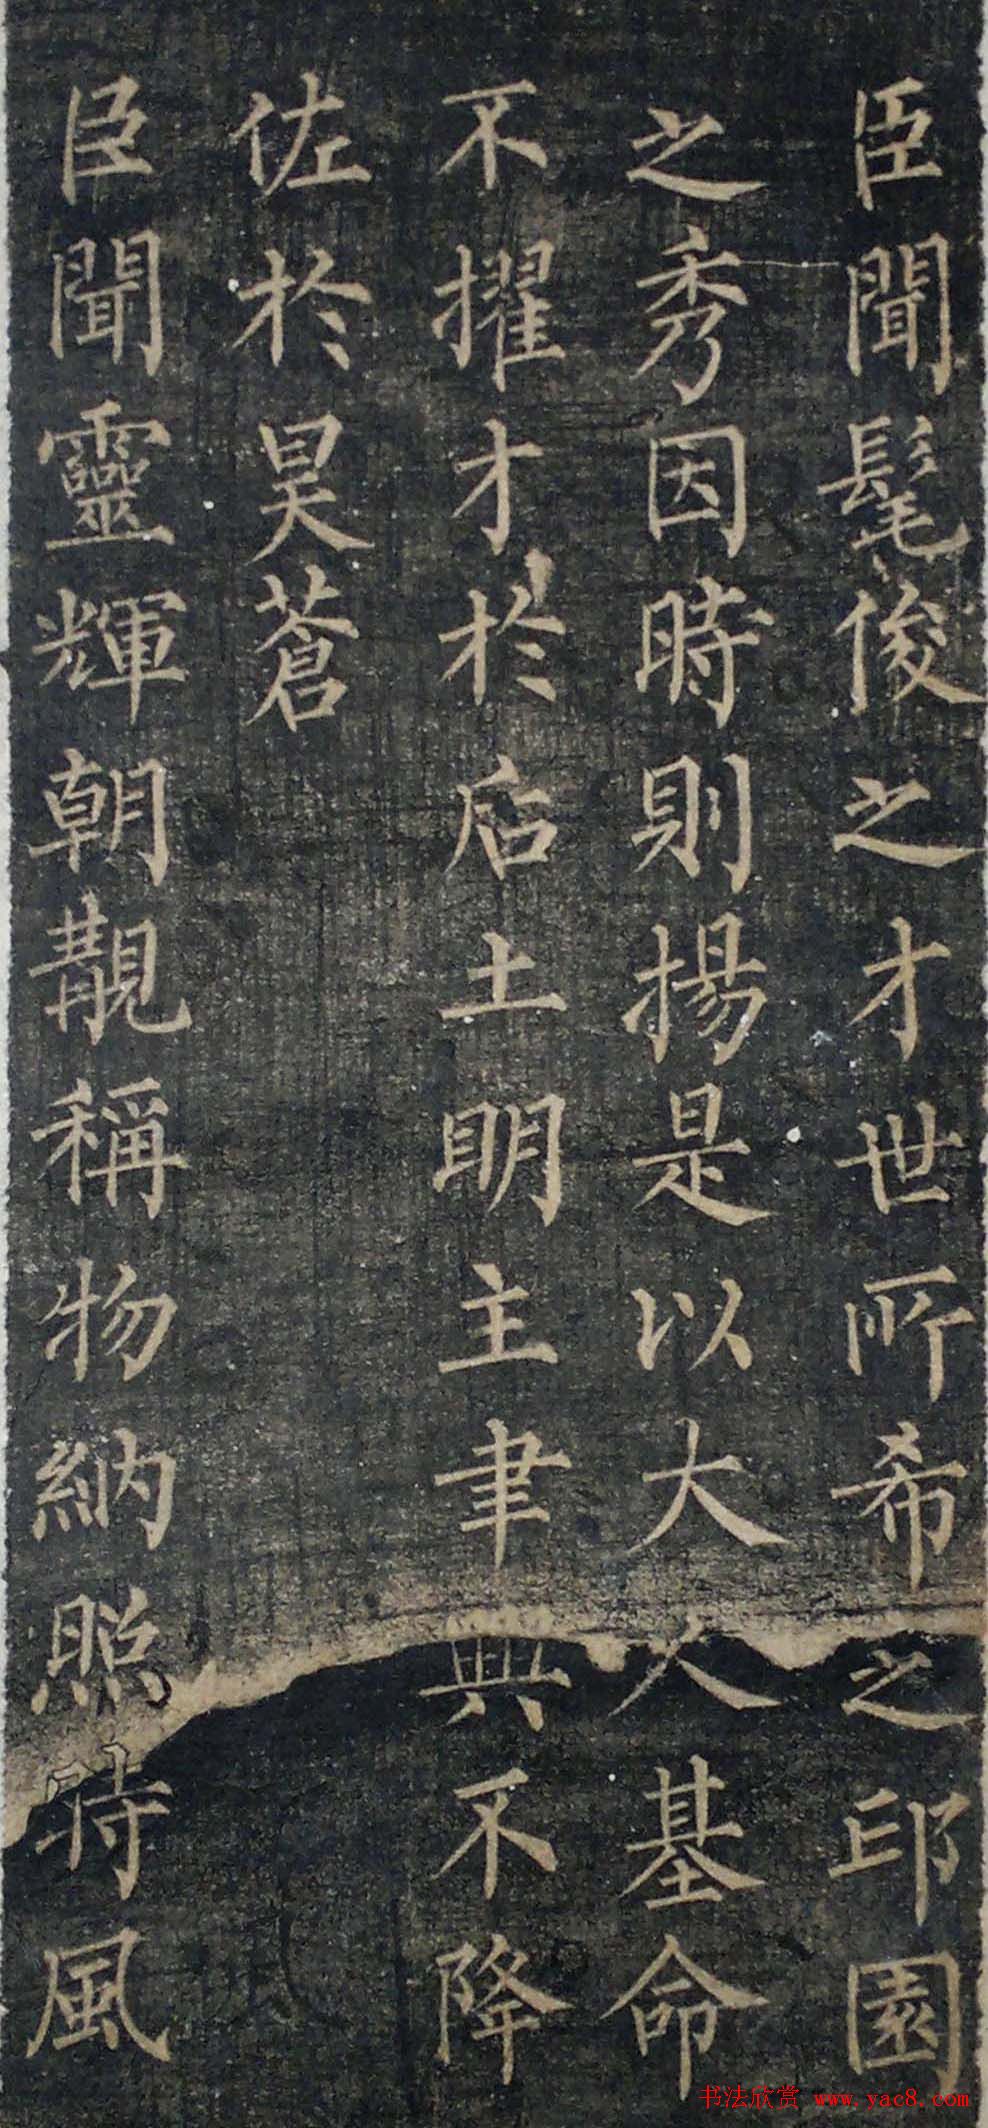 臣聞髦俊之才世所希之邱園
之秀因時則揚是以大人基命
不擢才於后土明主聿興不降
佐於昊蒼
臣聞靈輝朝覯稱物納照時風
书法欣赏 www.yac8.com